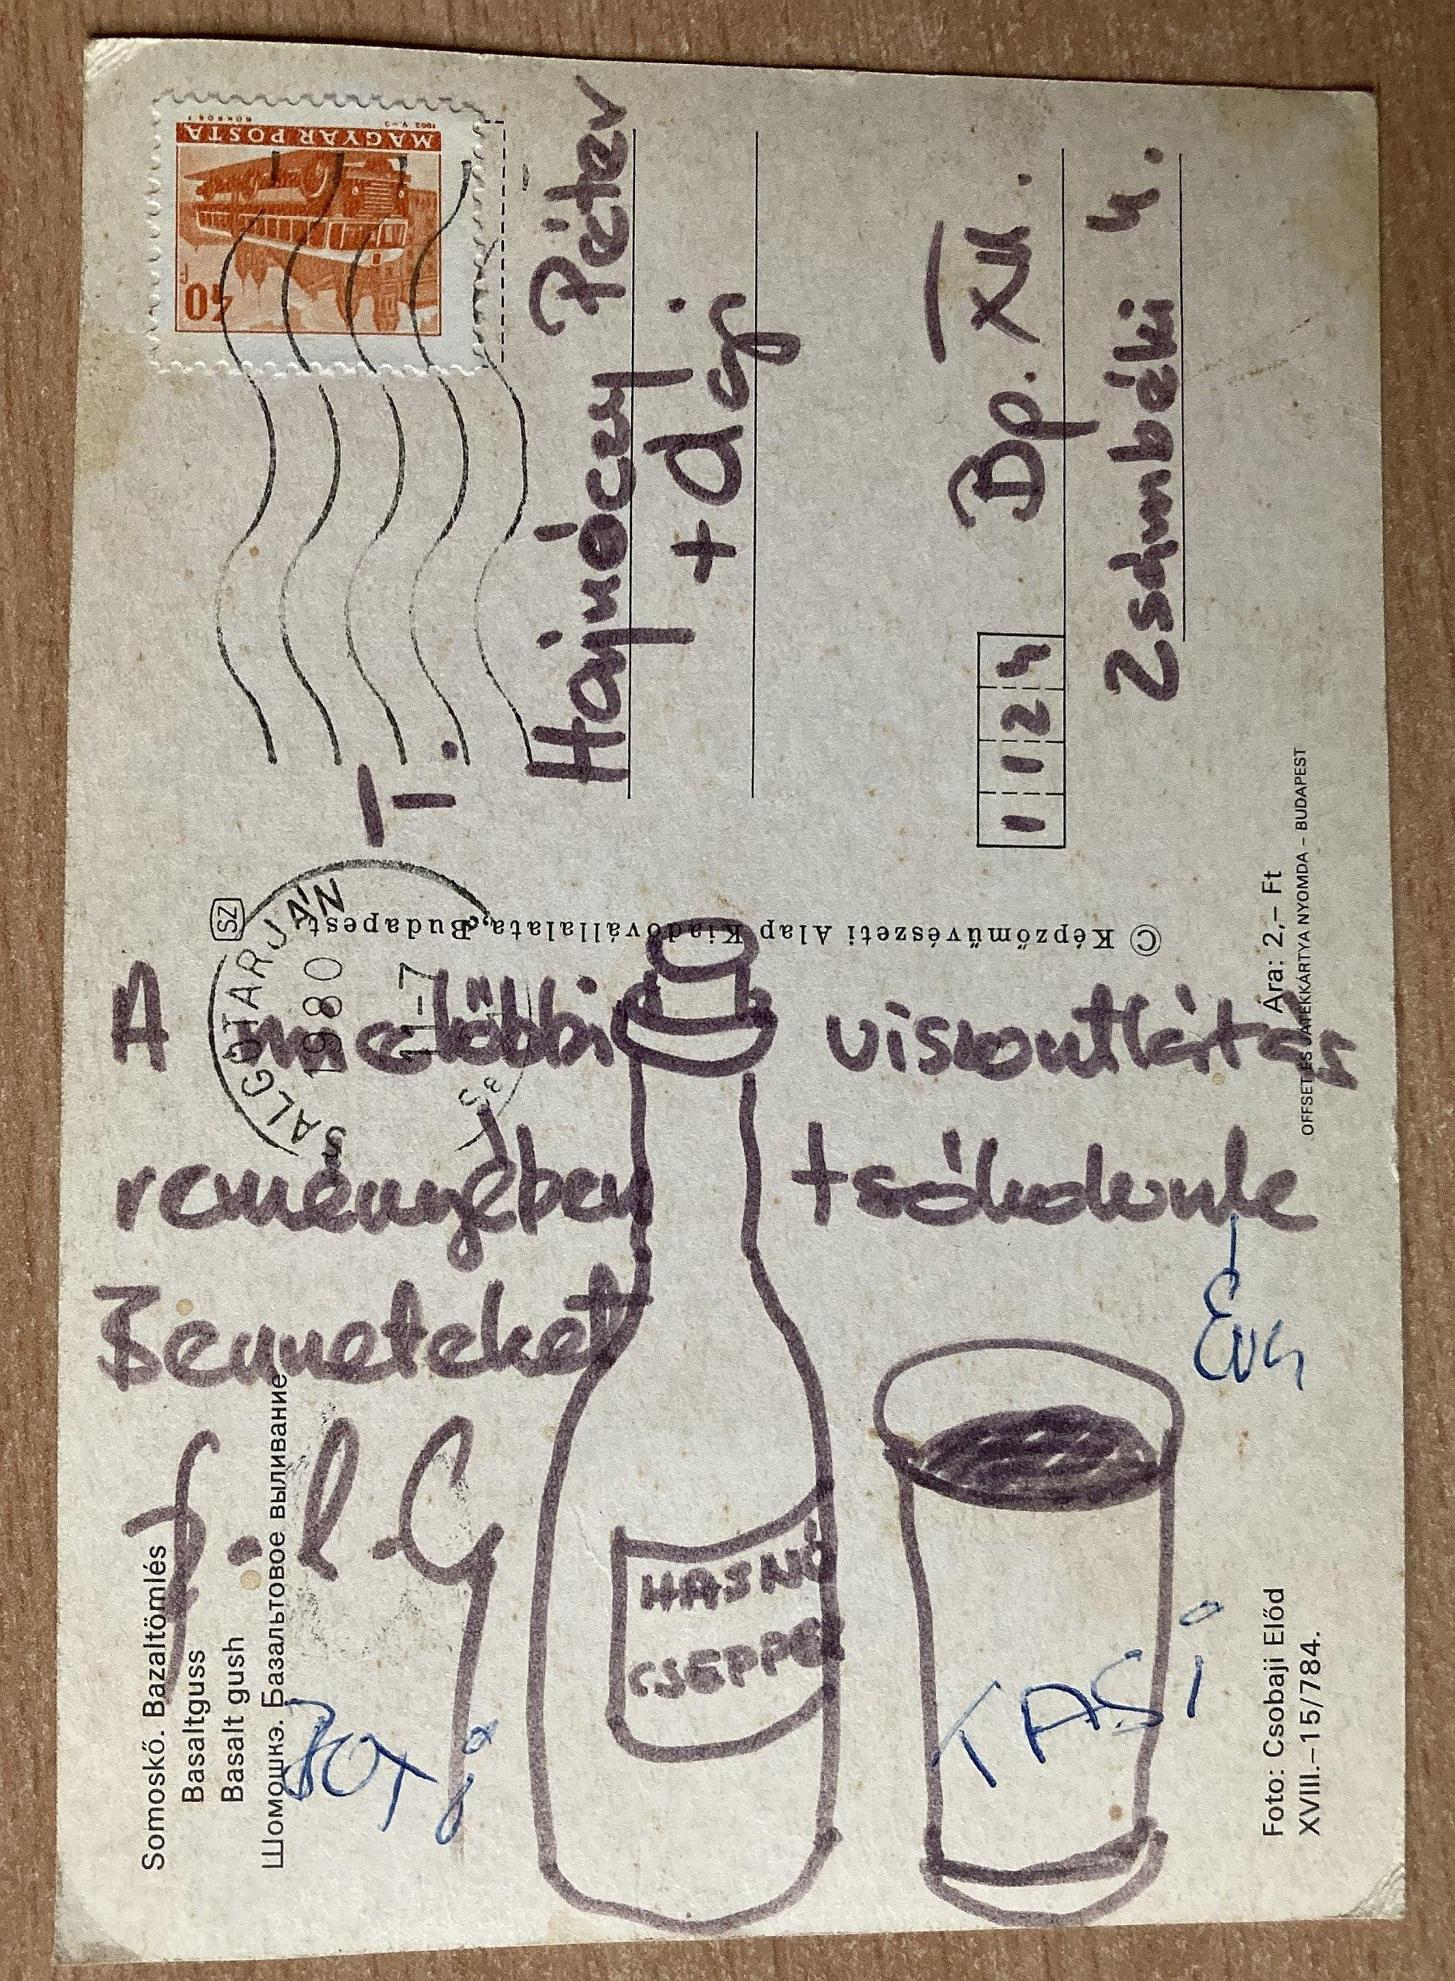 MAGYAR POSTA
40
T.
Hajnóczy Péter
+ Ági
Bp. XII.
1124
Zsámbéki u.
SALGÓTARJÁN
1980
11-7
SZ
© Képzőművészeti Alap Kiadóvállalata, Budapest
Ára: 2,– Ft
OFFSET ÉS JÁTÉKKÁRTYA NYOMDA – BUDAPEST
A mielőbbi viszontlátás
reményében +csókolunk
Benneteket
Éva
HASNÓ
CSEPPEK
TASI
Somoskő. Bazaltömlés
Basaltguss
Basalt gush
Шомошкэ. Базальтовое выливание
Foto: Csobaji Előd
XVIII.–15/784.